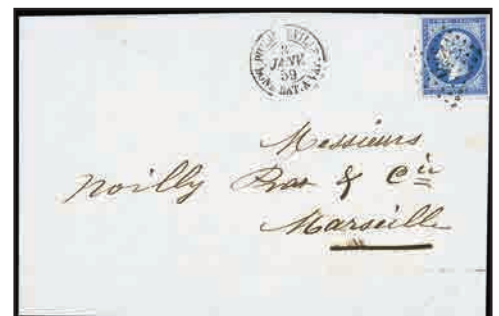 JANV.
59
BAT. A VAP.
Messieurs
Noilly Prat & Cie
Marseille